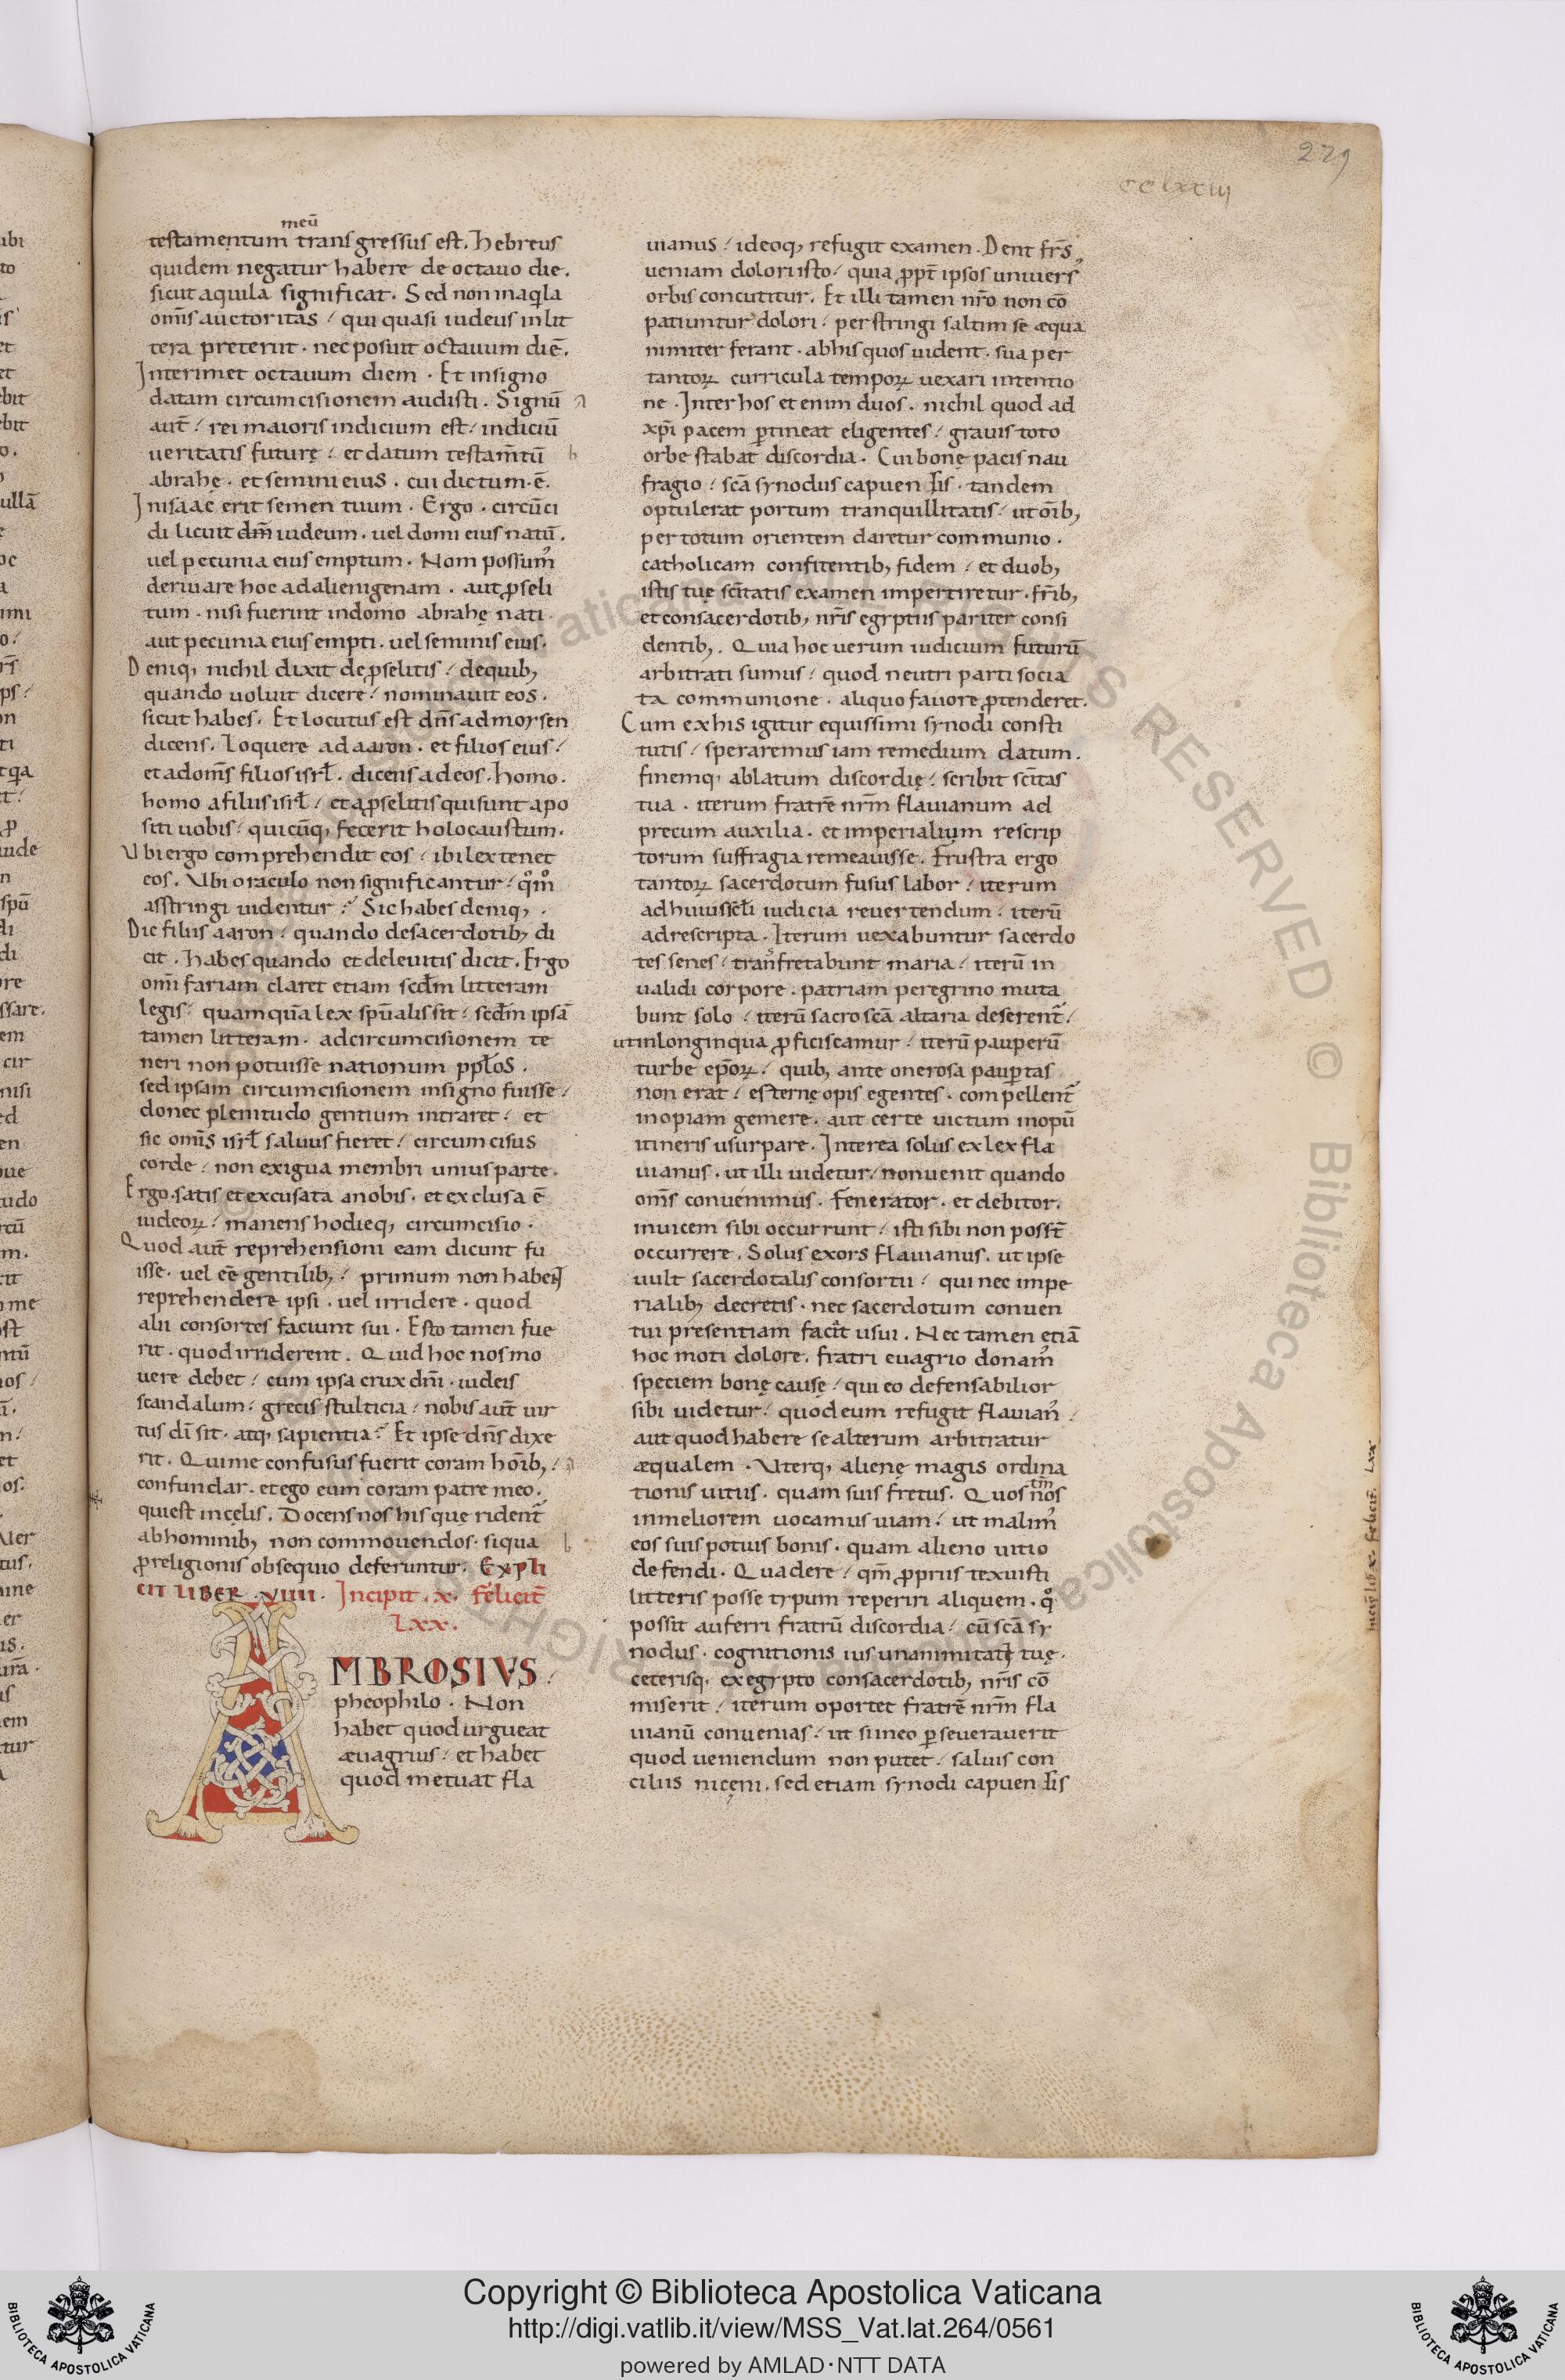 279
cclxxiiij
meū
testamentum transgressus est. Hebreus
quidem negatur habere de octauo die.
sicut aquila significat. Sed non in aqͥla
om̄is auctoritas / qui quasi iudeus in lit
tera preteriit. nec posuit octauum diē.
Interim et octauum diem. Et in signo
datam circumcisionem audisti. Signū
aut̄ / rei maioris indicium est / indiciū
ueritatis futurę / et datum testam̄tū
abrahę. et semini eius. cui dictum. ē.
In isaac erit semen tuum. Ergo. circūci
di licuit dm̄ iudeum. uel domi eius natū.
uel pecunia eius emptum. Nom possum᾽
deriuare hoc ad alienigenam. aut ꝓseli
tum. nisi fuerint in domo abrahę nati
aut pecunia eius empti. uel seminis eius.
Deniq; nichil dixit de ꝓselitis / de quib;
quando uoluit dicere / nominauit eos.
sicut habes. Et locutus est dn̄s ad moysen
dicens. Loquere ad aaron. et filios eius /
et ad om̄s filios isrł. dicens ad eos. homo.
homo a filiis isrł / et a ꝓselitis qui sunt apo
siti uobis / quicūq; fecerit holocaustum.
Vbi ergo comprehendit eos / ibi lex tenet
eos. Vbi oraculo non significantur / qͦmͦ
asstringi uidentur? Sic habes deniq;.
Dic filiis aaron / quando de sacerdotib; di
cit. habes quando et de leuitis dicit. Ergo
om̄ifariam claret etiam scd̄m litteram
legis / quamquā lex spūalis sit / scd̄m ipsā
tamen litteram. ad circumcisionem te
neri non potuisse nationum ppłos.
sed ipsam circumcisionem in signo fuisse /
donec plenitudo gentium intraret / et
sic om̄s isrł saluus fieret / circumcisus
corde / non exigua membri unius parte.
Ergo. satis et excusata a nobis. et exclusa ē
iudeoꝝ / manens hodieq; circumcisio.
Quod aut̄ reprehensioni eam dicunt fu
isse. uel eē gentilib; / primum non habent
reprehendere ipsi. uel irridere. quod
alii consortes faciunt sui. Esto tamen fue
rit. quod irriderent. Quid hoc nos mo
uere debet / cum ipsa crux dn̄i. iudeis
scandalum / grecis stulticia / nobis aut̄ uir
tus dī sit. atq; sapientia? Et ipse dn̄s dixe
rit. Qui me confusus fuerit coram hōib; /
confundar. et ego eum coram patre meo.
qui est in cęlis. Docens nos his que rident᷑
ab hominib; non commouendos. si qua
ꝓ religionis obsequio deferuntur. Expli
cit liber. VIIII. Incipit. x. felicit̄
Lxx.
AMBROSIVS.
pheophilo. Non
habet quod urgueat
æuagrius / et habet
quod metuat fla
uianus / ideoq; refugit examen. Dent frs̄
ueniam dolori isto / quia ꝓpt̄ ipsos uniuers᾽
orbis concutitur. Et illi tamen nr̄o non cō
patiuntur dolori / perstringi saltim se æqua
nimiter ferant. ab his quos uident. sua per
tantoꝝ curricula tempoꝝ uexari intentio
ne. Inter hos et enim duos. nichil quod ad
xp̄i pacem ꝑtineat eligentes / grauis toto
orbe stabat discordia. Cui bonę pacis nau
fragio / scā synodus capuensis. tandem
optulerat portum tranquillitatis / ut oīb;
per totum orientem daretur communio.
catholicam confitentib; fidem / et duob;
istis tuę scītatis examen impertiretur. frīb;
et consacerdotib; nrīs egyptiis pariter consi
dentib;. Quia hoc uerum iudicium futurū
arbitrati sumus / quod neutri parti socia
ta communione. aliquo fauore ꝓtenderet.
Cum ex his igitur equissimi synodi consti
tutis / speraremus iam remedium datum.
finemq; ablatum discordię / scribit scītas
tua. iterum fratrē nrm̄ flauianum ad
precum auxilia. et imperialium rescrip
torum suffragia remeauisse. Frustra ergo
tantoꝝ sacerdotum fusus labor / iterum
ad huius scłi iudicia reuertendum / iterū
ad rescripta. Iterum uexabuntur sacerdo
tes senes / transfretabunt maria / iterū in
ualidi corpore. patriam peregrino muta
bunt solo / iterū sacro scā altaria deserent᷑ /
ut in longinqua ꝓficiscamur / iterū pauperū
turbe ep̄oꝝ / quib; ante onerosa pauꝑtas
non erat / esternę opis egentes. compellent᷑
inopiam gemere. aut certe uictum inopū
itineris usurpare. Interea solus exlex fla
uianus. ut illi uidetur / non uenit quando
om̄s conuenimus. fenerator. et debitor.
inuicem sibi occurrunt / isti sibi non posst̄
occurrere. Solus exors flauianus. ut ipse
uult sacerdotalis consortii / qui nec impe
rialib; decretis. nec sacerdotum conuen
tui presentiam facit usui. Nec tamen etiā
hoc moti dolore. fratri euagrio donam᾽
speciem bonę causę / qui eo defensabilior
sibi uidetur / quod eum refugit flauian᾽ /
aut quod habere se alterum arbitratur
æqualem. Vterq; alienę magis ordina
tionis uitiis. quam suis fretus. Quos tm̄ nos
in meliorem uocamus uiam / ut malim᾽
eos suis potius bonis. quam alieno uitio
defendi. Qua de re / qm̄ ꝓpriis texuisti
litteris posse typum reperiri aliquem. qͦ
possit auferri fratrū discordia / cū scā sy
nodus. cognitionis ius unanimitati tuę.
ceterisq; ex egypto consacerdotib; nrīs cō
miserit / iterum oportet fratrē nrm̄ fla
uianū conuenias / ut si in eo ꝑseuerauerit
quod ueniendum non putet / saluis con
ciliis niceni. sed etiam synodi capuensis
Incip̄ lib x. felicit̄. Lxx
Copyright © Biblioteca Apostolica Vaticana
http://digi.vatlib.it/view/MSS_Vat.lat.264/0561
powered by AMLAD·NTT DATA
BIBLIOTECA APOSTOLICA VATICANA
BIBLIOTECA APOSTOLICA VATICANA